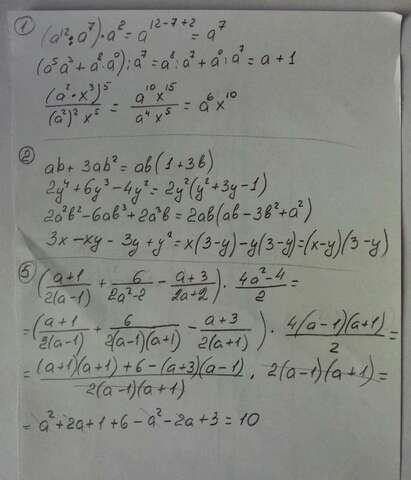 ① (a¹² : a⁷) · a² = a¹²⁻⁷⁺² = a⁷
(a⁵a³ + a⁸·a⁰) : a⁷ = a⁸ : a⁷ + a⁰ : a⁷ = a + 1
(a² · x³)⁵ / (a²)² x⁵ = a¹⁰ x¹⁵ / a⁴ x⁵ = a⁶ x¹⁰
② ab + 3ab² = ab(1+3b)
2y⁴ + 6y³ - 4y² = 2y²(y² + 3y - 1)
2a²b² - 6ab³ + 2a³b = 2ab(ab - 3b² + a²)
3x - xy - 3y + y² = x(3-y) - y(3-y) = (x-y)(3-y)
⑤ ((a+1)/(2(a-1)) + 6/(2a²-2) - (a+3)/(2a+2)) · (4a²-4)/2 =
= ((a+1)/(2(a-1)) + 6/(2(a-1)(a+1)) - (a+3)/(2(a+1))) · 4(a-1)(a+1)/2 =
= ((a+1)(a+1) + 6 - (a+3)(a-1))/(2(a-1)(a+1)) · 2(a-1)(a+1) =
= a² + 2a + 1 + 6 - a² - 2a + 3 = 10